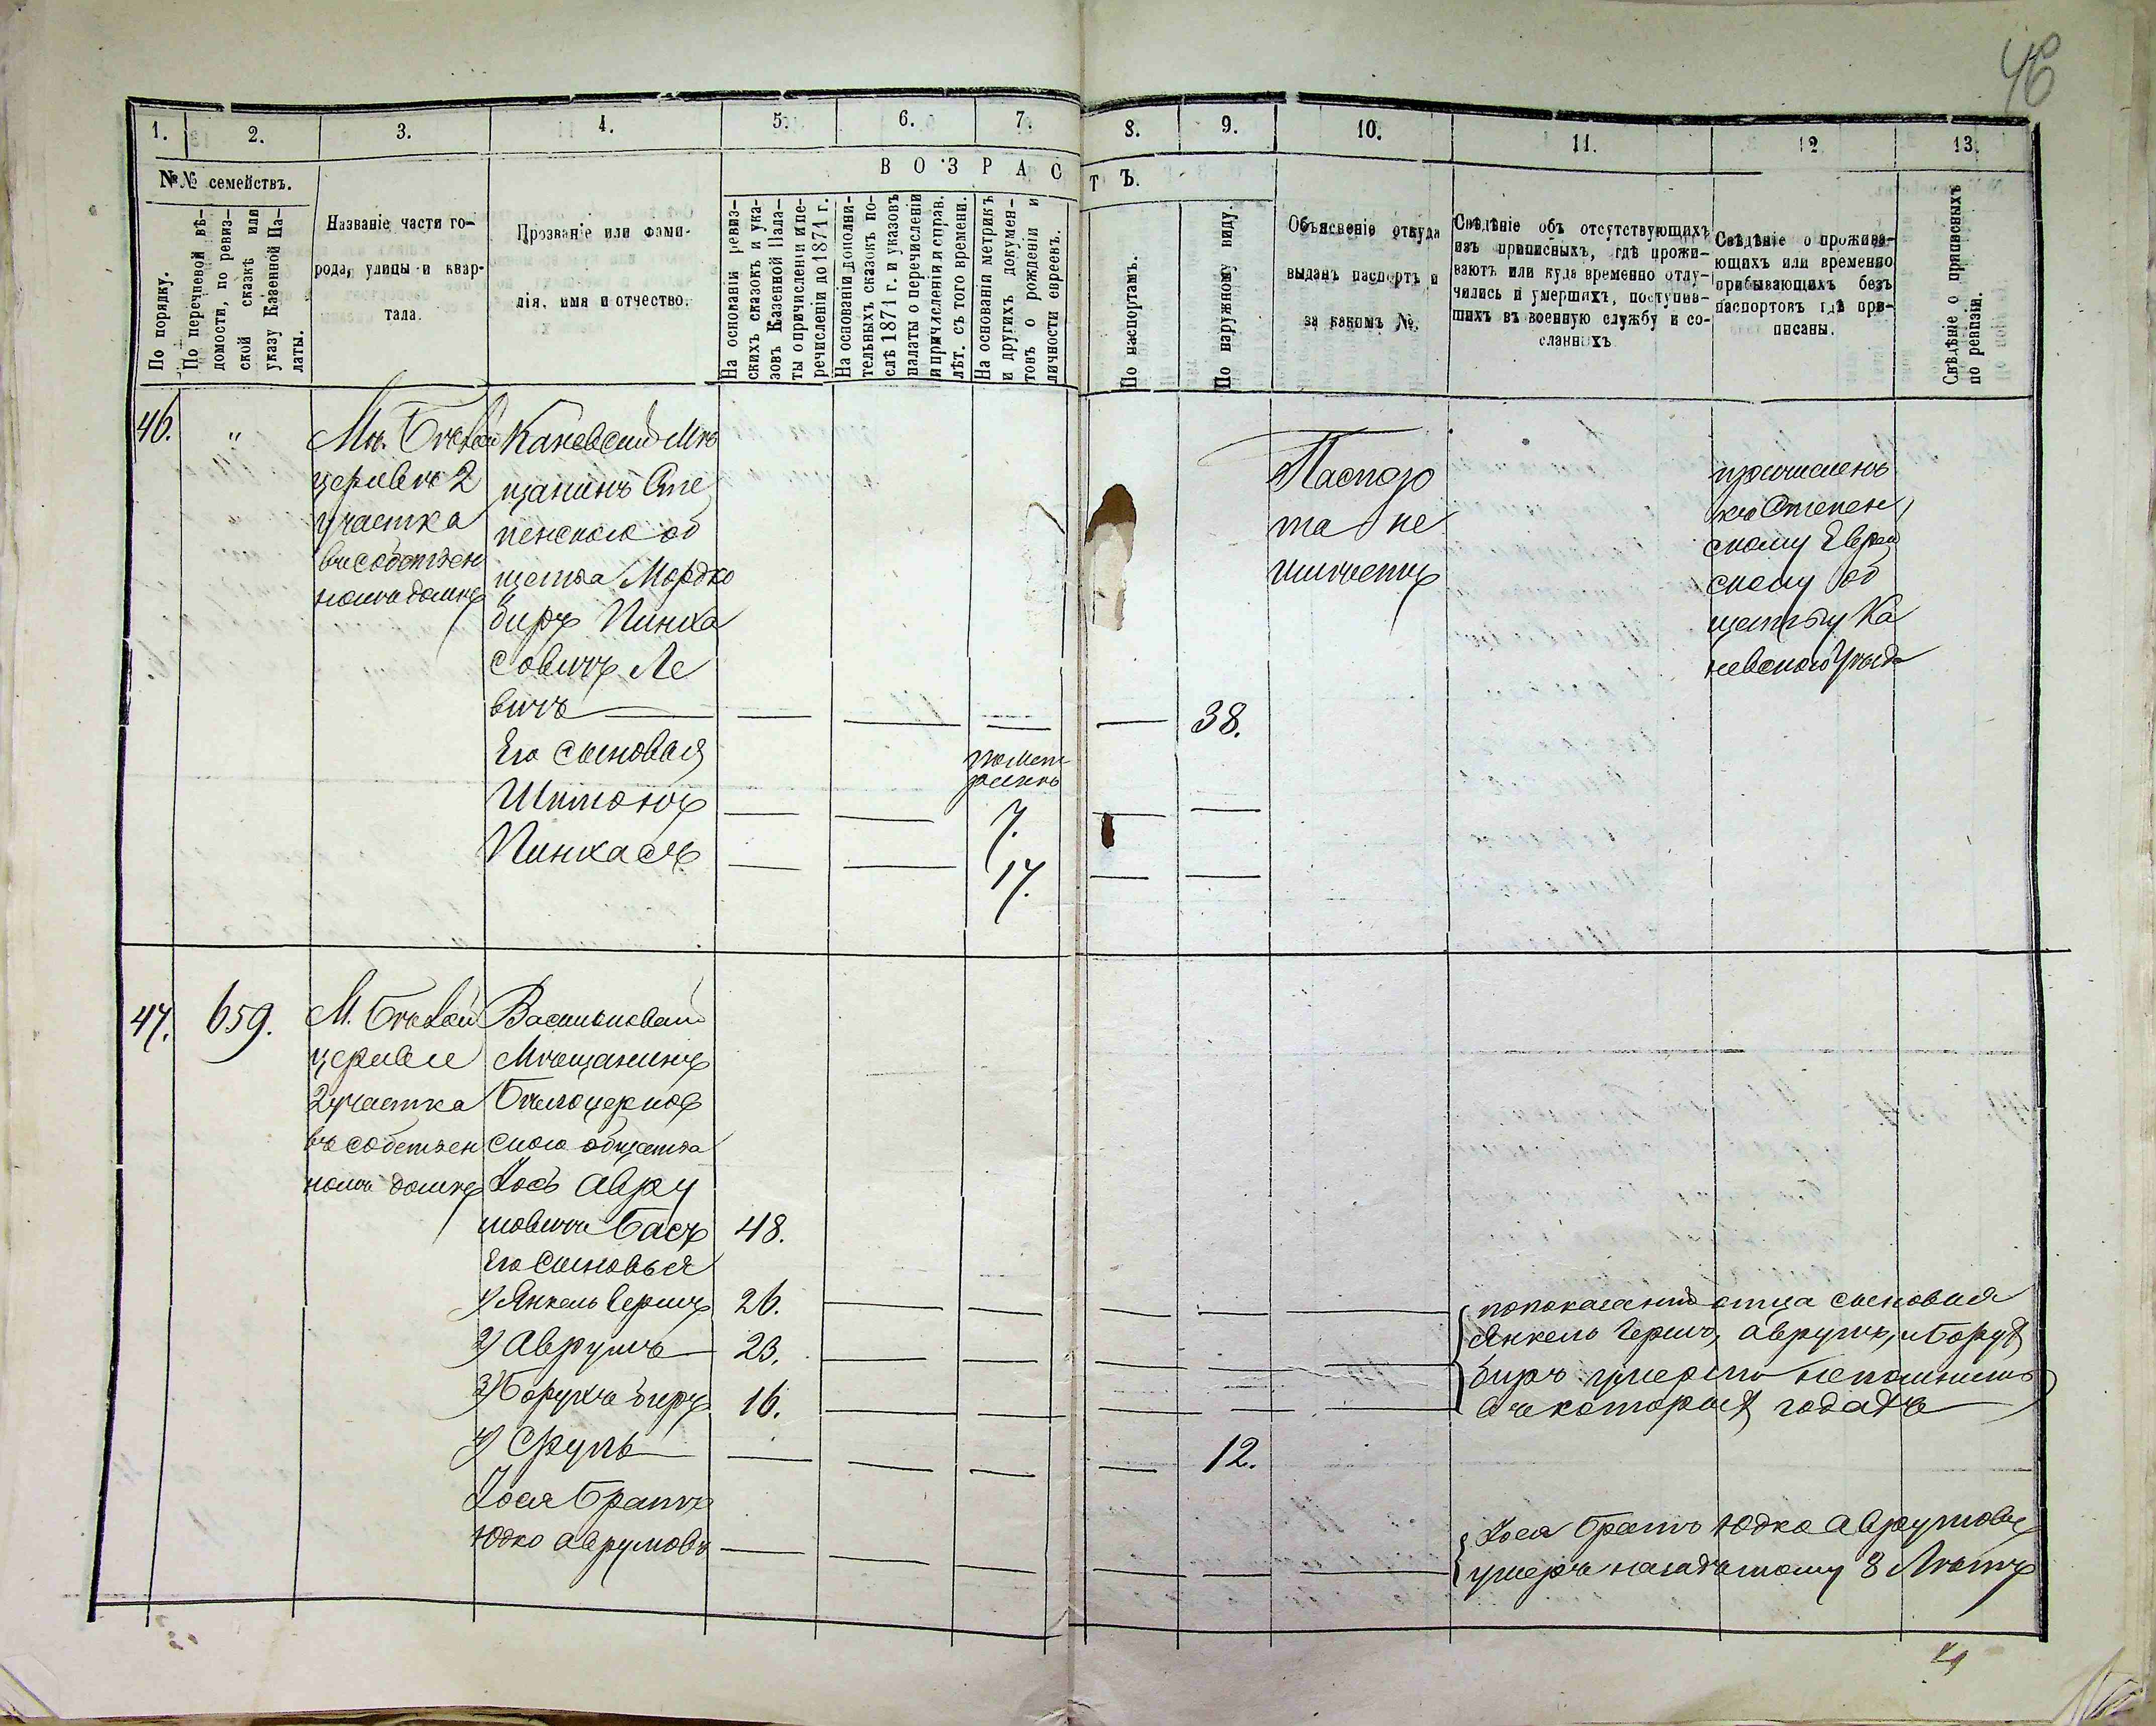 46
1. 2. 3. 4. 5. 6. 7. 8. 9. 10. 11. 12 13.
В О З Р А С Т Ъ.
№№ семействъ.
По порядку.
По перечневой вѣ-
домости, по ревиз-
ской сказкѣ или
указу Казенной Па-
латы.
Названіе части го-
рода, улицы и квар-
тала.
Прозваніе или фами-
лія, имя и отчество.
На основаніи ревиз-
скихъ сказокъ и ука-
зовъ Казенной Пала-
ты о причисленіи и пе-
речисленіи до 1871 г.
На основаніи дополни-
тельныхъ сказокъ по-
слѣ 1871 г. и указовъ
палаты о перечисленіи
и причисленіи и справ.
лѣт. съ того времени.
На основаніи метрикъ
и другихъ докумен-
товъ о рожденіи и
личности евреевъ.
По паспортамъ.
По наружному виду.
Объясненіе откуда
выданъ паспортъ и
за какимъ №.
Свѣдѣніе объ отсутствующихъ
изъ приписныхъ, гдѣ прожи-
ваютъ или куда временно отлу-
чились и умершихъ, поступив-
шихъ въ военную службу и со-
сланныхъ
Свѣдѣніе о прожива-
ющихъ или временно
прибывающихъ безъ
паспортовъ гдѣ при-
писаны.
Свѣдѣніе о приписныхъ
по ревизіи.
46.
"
Мѣ. Бѣлой
церквѣ 2
участка
въ собствен
номъ домѣ
Каневскій Мѣ
щанинъ Сте
пенского об
щества Мордко
Беръ Пинха
совичъ Ле
вичъ
38.
Его сыновья
по мет
рикѣ
Шимонъ
7.
Пинхасъ
17.
Паспор
та не
имѣетъ
причисленъ
къ Степен
скому Еврей
скому об
ществу Ка
невского Уѣзда
47.
659.
М. Бѣлой
церкви
2 участка
въ собствен
номъ домѣ
Васильковскій
Мѣщанинъ
Бѣлоцерков
ского общества
Іось Авру
мовичъ Басъ 48.
Его Сыновья
1) Янкель Гершъ 26.
2) Аврумъ 23.
3) Борухъ беръ 16.
4) Сруль 12.
Іося братъ
Юдко Аврумовъ
по показанію отца сыновья
Янкель Гершъ, Аврумъ, и Борух
беръ умерли непомнитъ
въ которых годахъ
Іося братъ Юдко Аврумовъ
умеръ назадъ тому 8 Лѣтъ